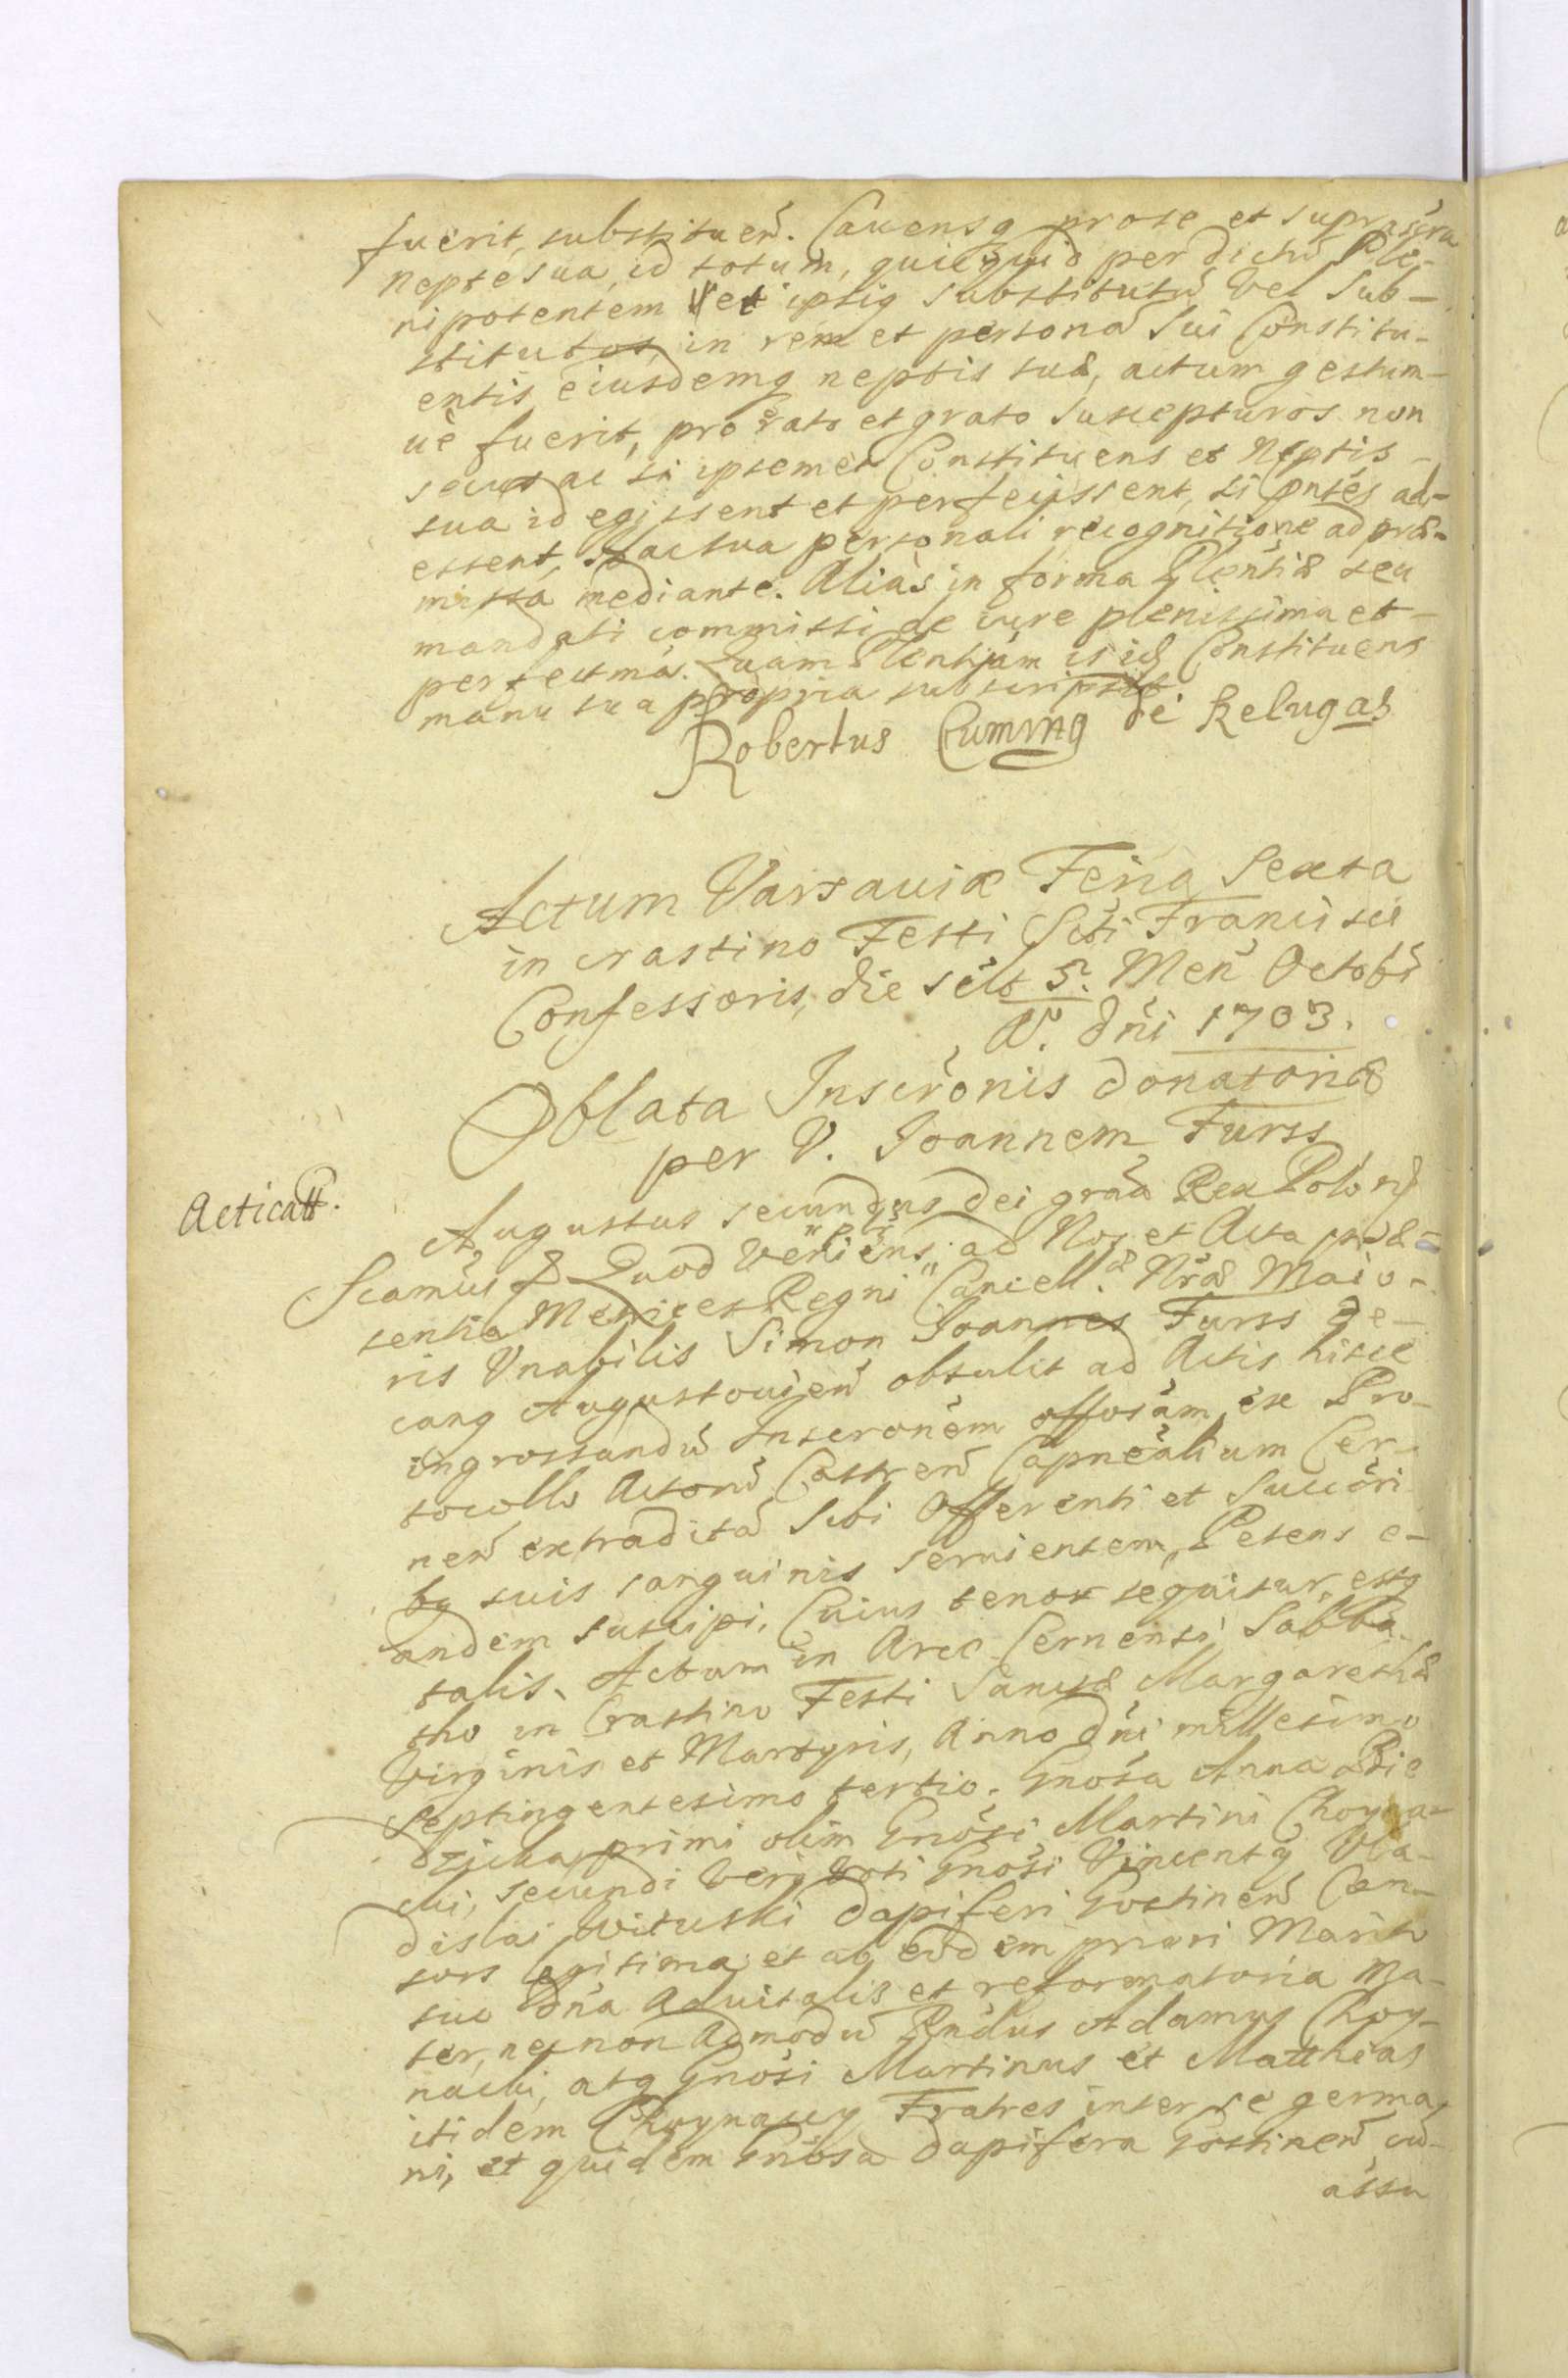 fuerit, substituen̄. Cavensq̨ pro se et suprascr̄a
nepte sua, id totum, quicquid per dictū Ple-
nipotentem vel ipsiq̨ substitutū vel Sub-
stitutos, in rem et personā sui Constitu-
entis eiusdemq̨ neptis suæ, actum gestum-
ue fuerit, pro rato et grato suscepturos non
secus ac si ipsemet Constituens et Neptis
sua id egissent et perfecissent, si pn̄tes ad-
essent, ac sua personali recognitione ad præ-
missa mediante. Alias in forma Plentiæ seu
mandati commissi de iure plenissima et
perfectma. Quam Plentiam is id Constituens
manu sua propria subscripsit
Robertus Cuming de Relugas
Actum Varsaviæ Feria Sexta
in crastino Festi Scti Francisci
Confessoris, die scil 5. Men̄ Octobr̄
A. dn̄i 1703.
Oblata Inscrōnis donatoriæ
per V. Joannem Furss
Acticatt.
Augustus secundus dei gra͞a Rex Polon̄
Scamus & Quod veniens ad Nos et Acta præ-
sentia Metrices Regni Cancell.æ Nr͞æ Maio-
ris Vnabilis Simon Joannes Furss De-
canq̨ Augustovien̄ obtulit ad Actis hisce
ingrossandū Inscronem offosam ex Pro-
tocollo Actorū Castren̄ Capnealium Cer-
nen̄ extraditā Sibi Offerenti et Succori
bq̨ suis sanguinis servientem, Petens e-
andem suscipi, Cuius tenor sequitur, estq̨
talis. Actum in Arce Cernensi Sabba-
tho in Crastino Festi Sanctæ Margarethæ
Virginis et Martyris, Anno dn̄i millesimo
septingentesimo tertio. Gnosa Anna Pie
dzicka primi olim Gnosi Martini Choyna-
cki, secundi vero voti Gnosi Vincenty Vla-
dislai Wituski dapiferi Gostinen̄ Con-
sors legitima et ab eodem priori Marito
suo dn̄a Advitalis et reformatoria Ma-
ter, necnon Admodū Rn̄dus Adamus Choy-
nacki, atq̨ Gnosi Martinus et Matthias
itidem Choynaccy Fratres inter se germa
ni, et quidem Gnosa dapifera Gostinen̄ cū
assu